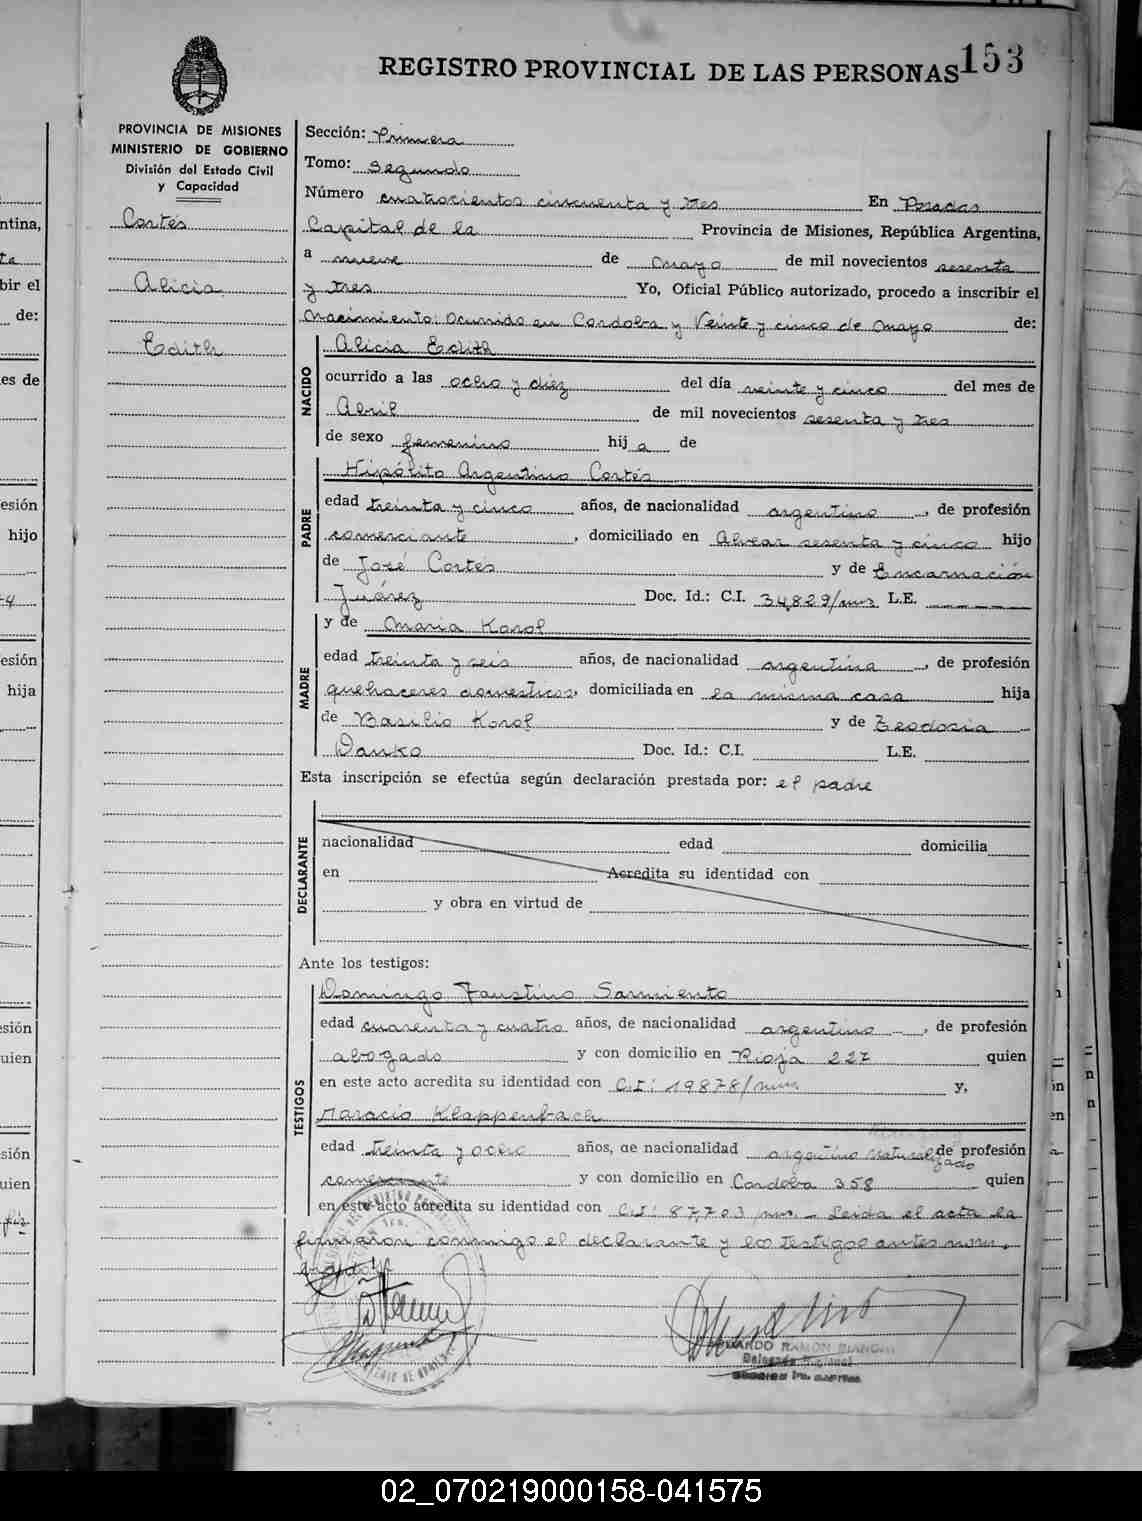 REGISTRO PROVINCIAL DE LAS PERSONAS
153
PROVINCIA DE MISIONES
MINISTERIO DE GOBIERNO
División del Estado Civil
y Capacidad
Cortés
Alicia
Edith
Sección: Primera
Tomo: Segundo
Número cuatrocientos cincuenta y tres En Posadas
Capital de la Provincia de Misiones, República Argentina,
a nueve de mayo de mil novecientos sesenta
y tres Yo, Oficial Público autorizado, procedo a inscribir el
Nacimiento: Ocurrido en Cordoba y Veinte y cinco de Mayo de:
NACIDO
Alicia Edith
ocurrido a las ocho y diez del día veinte y cinco del mes de
Abril de mil novecientos sesenta y tres
de sexo femenino hija de
PADRE
Hipólito Argentino Cortés
edad treinta y cinco años, de nacionalidad argentino, de profesión
comerciante, domiciliado en Alvear sesenta y cinco hijo
de José Cortés y de Encarnación
Juárez Doc. Id.: C.I. 34,829/mnes L.E.
MADRE
y de Maria Korol
edad treinta y seis años, de nacionalidad argentina, de profesión
quehaceres domesticos, domiciliada en la misma casa hija
de Basilio Korol y de Teodosia
Danko Doc. Id.: C.I. L.E.
Esta inscripción se efectúa según declaración prestada por: el padre
DECLARANTE
nacionalidad edad domicilia
en Acredita su identidad con
y obra en virtud de
Ante los testigos:
TESTIGOS
Domingo Faustino Sarmiento
edad cuarenta y cuatro años, de nacionalidad argentino, de profesión
abogado y con domicilio en Rioja 227 quien
en este acto acredita su identidad con C.I: 19878/mnes y,
Horacio Klappenbach
edad treinta y ocho años, de nacionalidad argentino naturalizado de profesión
comerciante y con domicilio en Cordoba 358 quien
en este acto acredita su identidad con C.I: 87,703/mnes. - Leida el acta la
firmaron conmigo el declarante y los testigos antes nom.
brados
EDUARDO RAMON BIANCHI
Delegado Regional
02_070219000158-041575